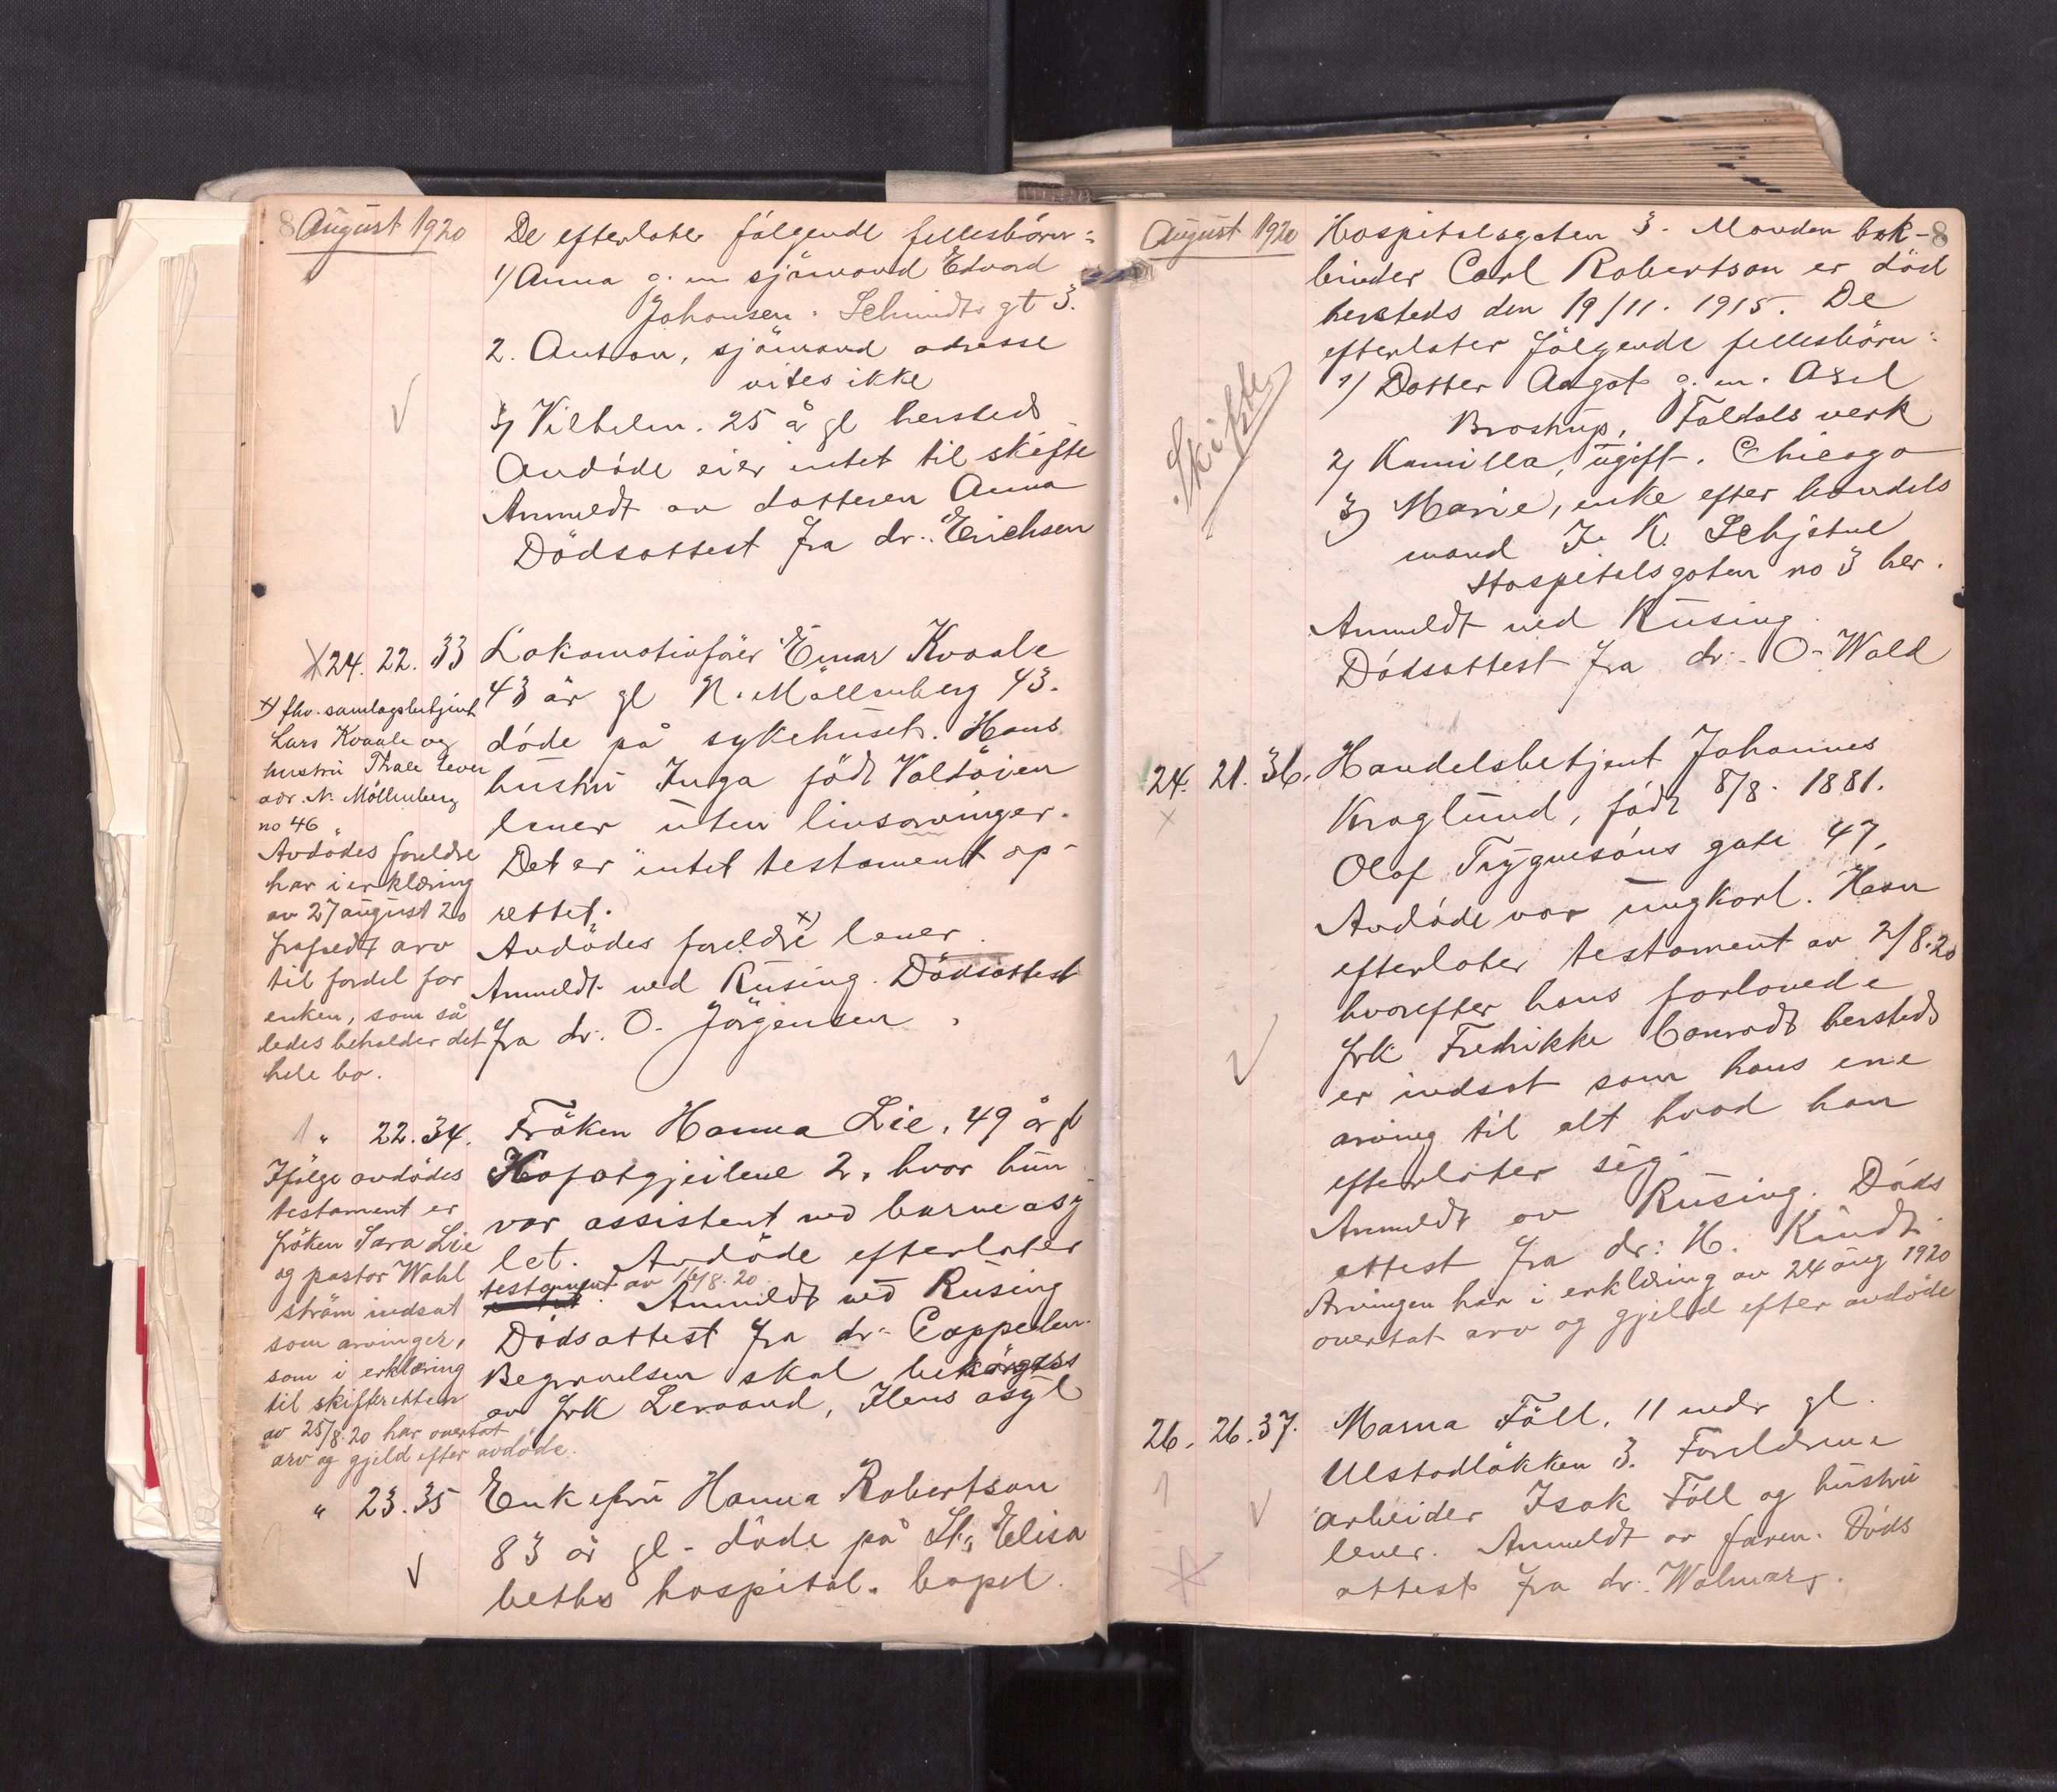 8 August 1920
De efterlater følgende fellesbörn:
1) Anna g. m. sjömand Edvard
Johansen. Schmidts gt 3.
2. Anton, sjömand adresse
vites ikke
3) Vilhelm. 25 å gl hersteds
Avdöde eier intet til skifte
Anmeldt av datteren Anna
Dödsattest fra dr. Erichsen
24. 22. 33 Lokomotivförer Einar Kvaale
43 år gl N. Möllenberg 43.
döde på sykehuset. Hans
hustru Inga föd Valdöien
lever uten livsarvinger.
Det er intet testament op-
rettet.
Avdödes foreldre x) lever
Anmeldt ved Rusing. Dödsattest
fra dr. O. Jörgensen.
x) fhv. samlagsbetjent
Lars Kvaale og
hustru Thale lever
adr. N. Möllenberg
no 46
Avdödes foreldre
har i erklæring
av 27 august 20
frafaldt arv
til fordel for
enken, som så
ledes beholder det
hele bo.
" 22. 34. Fröken Hanna Lie, 49 år gl
2, hvor hun
var assistent ved barneasy
let. Avdöde efterlater
testament av 16/8. 20. Anmeldt ved Rusing
Dödsattest fra dr. Cappelen.
Begravelsen skal bekostes
av frk Levaand, Ilens asyl
Ifölge avdödes
testament er
fröken Sara Lie
og pastor Wahl
ström indsat
som arvinger,
som i erklæring
til skifteretten
av 25/8. 20 har overtat
arv og gjeld efter avdöde.
" 23. 35 Enkefru Hanna Robertson
83 år gl - döde på St. Elisa
beths hospital. bopel
August 1920 8
Hospitalsgaten 3. Manden bok-
binder Carl Robertson er död
hersteds den 19/11. 1915. De
efterlater følgende fellesbörn:
Skifte
1) Datter Aagot g. m. Axel
Brostrup, Foldals verk
2) Kamilla, ugift. Chicago
3) Marie, enke efter handels
mand J. K. Schjetne
Hospitalsgaten no 3 her.
Anmeldt ved Rusing.
Dödsattest fra dr. O. Wald
24. 21. 36. Handelsbetjent Johannes
Kraglund, föd 8/8. 1881.
Olaf Trygvesöns gate 47.
Avdöde var ungkarl. Han
efterlater testament av 2/8. 20
hvorefter hans forlovede
frk Fredrikke Conradt hersteds
er indsat som hans ene
arving til alt hvad han
efterlater sig.
Anmeldt av Rusing. Döds
attest fra dr: H. Kindt.
Arvingen har i erklæring av 24 aug 1920
overtat arv og gjeld efter avdöde
26. 26. 37. Marna Föll, 11 mdr gl.
Ulstadlökken 3. Foreldrene
arbeider Isak Föll og hustru
lever. Anmeldt av faren. Döds
attest fra dr. Wolmar.